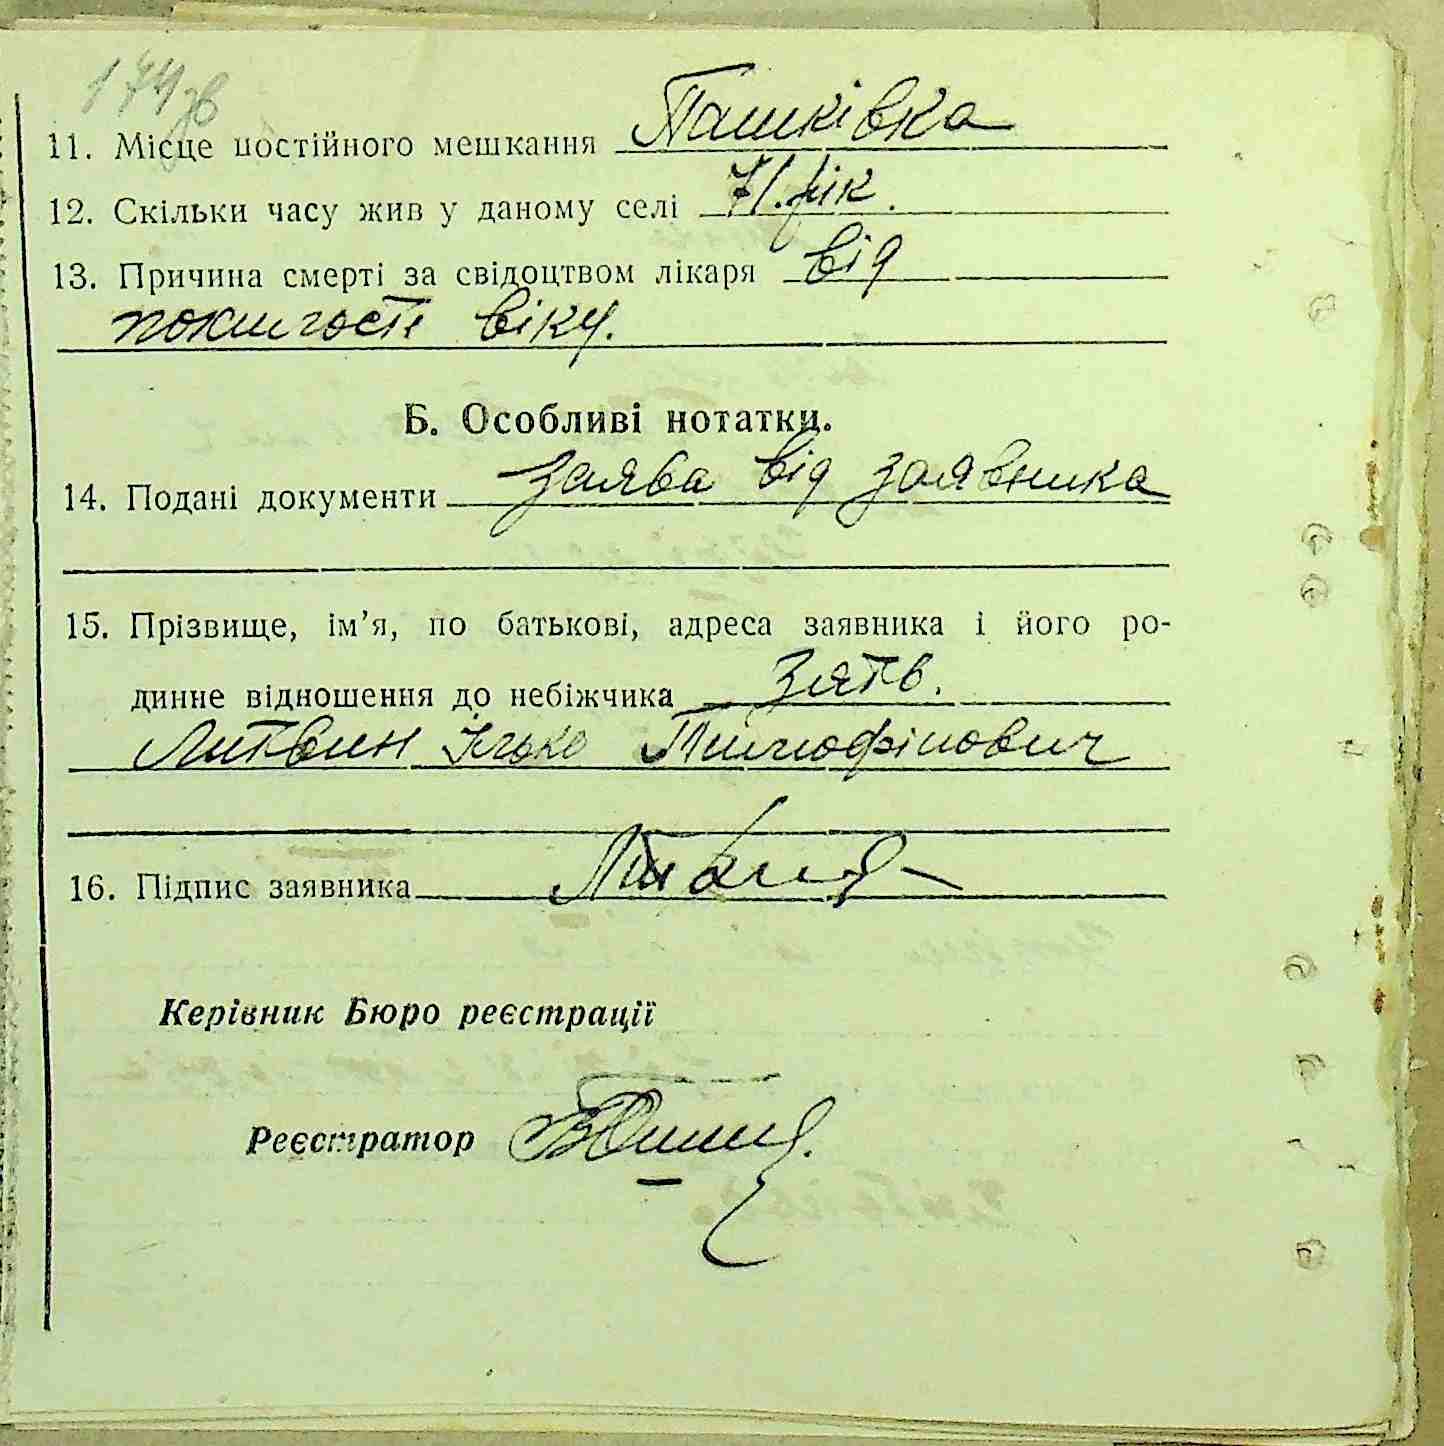 174зв
11. Місце постійного мешкання Пашківка
12. Скільки часу жив у даному селі 71. рік.
13. Причина смерті за свідоцтвом лікаря від
похилости віку.
Б. Особливі нотатки.
14. Подані документи заява від заявника
15. Прізвище, ім’я, по батькові, адреса заявника і його ро-
динне відношення до небіжчика зять.
Литвин Ілько Тимофійович
16. Підпис заявника
Керівник Бюро реєстрації
Реєстратор